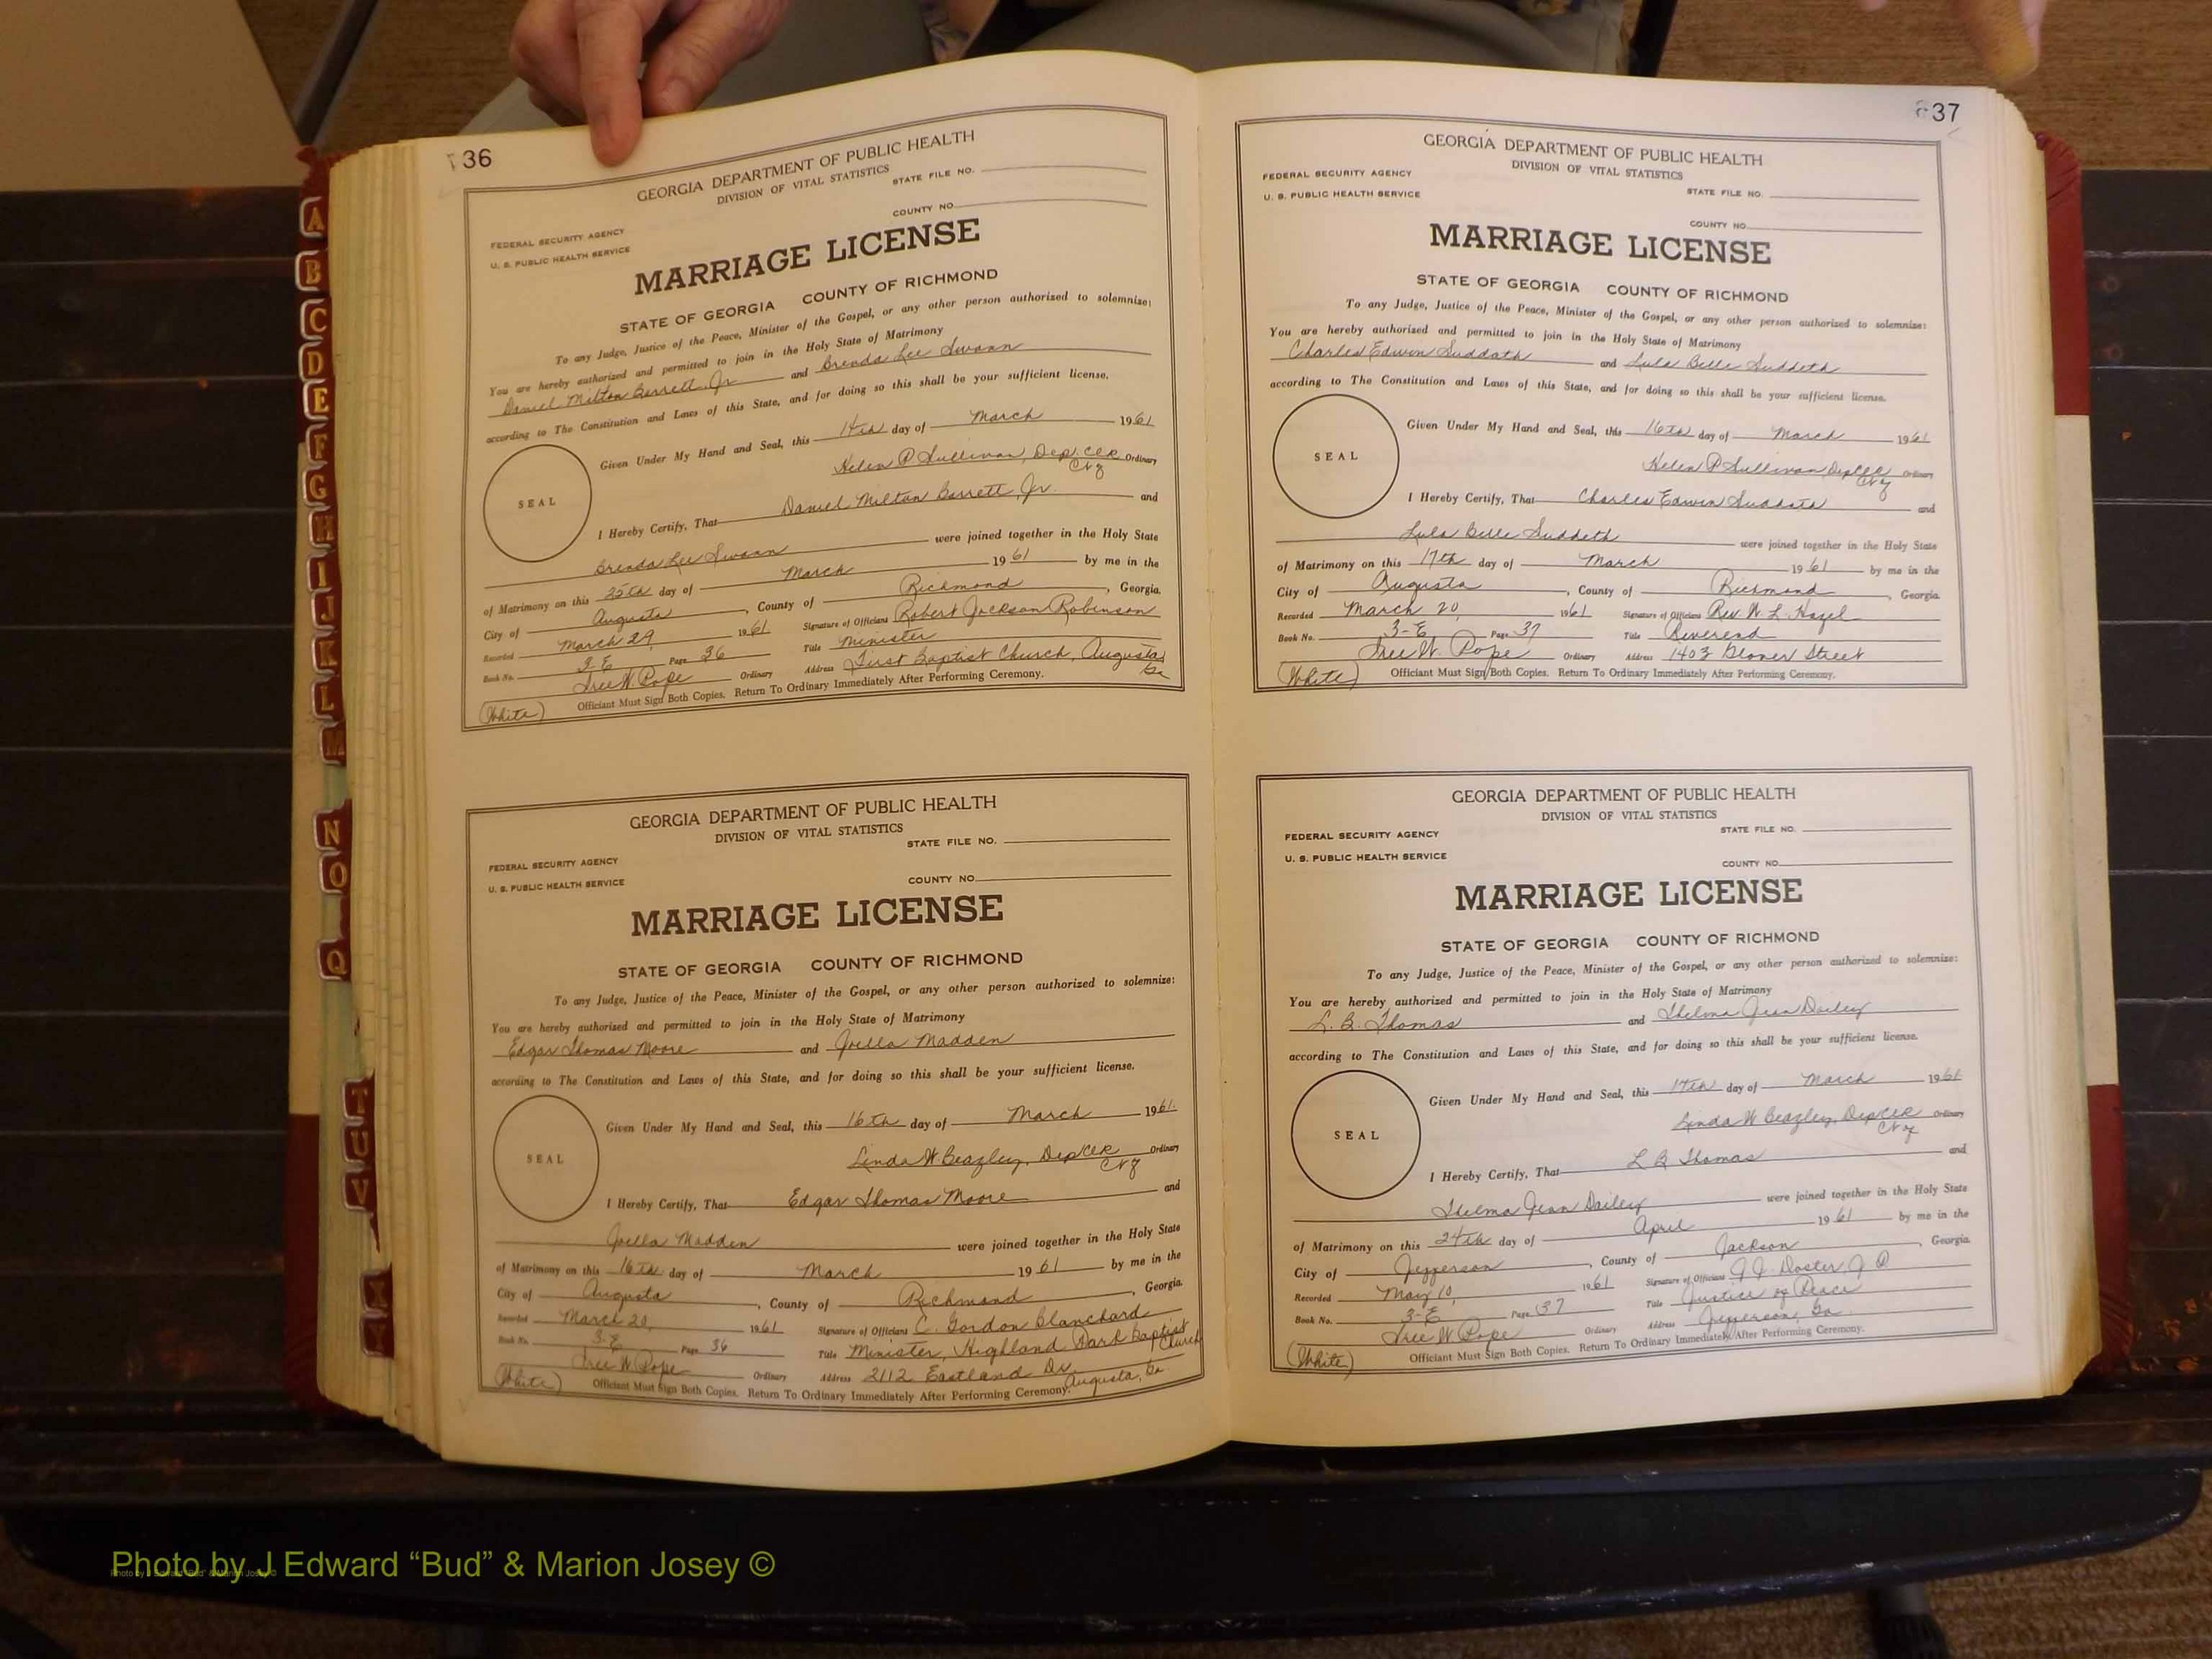 36
GEORGIA DEPARTMENT OF PUBLIC HEALTH
DIVISION OF VITAL STATISTICS
STATE FILE NO.
COUNTY NO.
FEDERAL SECURITY AGENCY
U. S. PUBLIC HEALTH SERVICE
MARRIAGE LICENSE
STATE OF GEORGIA COUNTY OF RICHMOND
To any Judge, Justice of the Peace, Minister of the Gospel, or any other person authorized to solemnize:
You are hereby authorized and permitted to join in the Holy State of Matrimony
Daniel Milton Barrett, Jr. and Brenda Lee Swann
according to The Constitution and Laws of this State, and for doing so this shall be your sufficient license.
SEAL
Given Under My Hand and Seal, this day of March 1961
Helen P Sullivan, Dep. Clk Ordinary
I Hereby Certify, That Daniel Milton Barrett, Jr. and
Brenda Lee Swann were joined together in the Holy State
of Matrimony on this 25th day of March 1961 by me in the
City of Augusta, County of Richmond, Georgia.
Recorded March 29 1961 Signature of Officiant Robert Jackson Robinson
Book No. 3-E Page 36 Title Minister
Ordinary Address First Baptist Church, Augusta, Ga
(White) Officiant Must Sign Both Copies. Return To Ordinary Immediately After Performing Ceremony.
GEORGIA DEPARTMENT OF PUBLIC HEALTH
DIVISION OF VITAL STATISTICS
STATE FILE NO.
FEDERAL SECURITY AGENCY
U. S. PUBLIC HEALTH SERVICE
COUNTY NO.
MARRIAGE LICENSE
STATE OF GEORGIA COUNTY OF RICHMOND
To any Judge, Justice of the Peace, Minister of the Gospel, or any other person authorized to solemnize:
You are hereby authorized and permitted to join in the Holy State of Matrimony
Edgar Thomas Moore and Joella Madden
according to The Constitution and Laws of this State, and for doing so this shall be your sufficient license.
SEAL
Given Under My Hand and Seal, this 16th day of March 1961.
Linda W Beazley, Dep Clk Ordinary
I Hereby Certify, That Edgar Thomas Moore and
Joella Madden were joined together in the Holy State
of Matrimony on this 16th day of March 1961 by me in the
City of Augusta, County of Richmond, Georgia.
Recorded March 20, 1961 Signature of Officiant C. Gordon Blanchard
Book No. 3-E Page 36 Title Minister, Highland Park Baptist Church
Ordinary Address 2112 Eastland Dr. Augusta, Ga.
(White) Officiant Must Sign Both Copies. Return To Ordinary Immediately After Performing Ceremony.
37
GEORGIA DEPARTMENT OF PUBLIC HEALTH
DIVISION OF VITAL STATISTICS
FEDERAL SECURITY AGENCY
U. S. PUBLIC HEALTH SERVICE
STATE FILE NO.
COUNTY NO.
MARRIAGE LICENSE
STATE OF GEORGIA COUNTY OF RICHMOND
To any Judge, Justice of the Peace, Minister of the Gospel, or any other person authorized to solemnize:
You are hereby authorized and permitted to join in the Holy State of Matrimony
Charles Edwin Suddath and Lula Belle Suddeth
according to The Constitution and Laws of this State, and for doing so this shall be your sufficient license.
SEAL
Given Under My Hand and Seal, this 16th day of March 1961
Helen P Sullivan Dep Clk Ordinary
I Hereby Certify, That Charles Edwin Suddath and
Lula Belle Suddeth were joined together in the Holy State
of Matrimony on this 17th day of March 1961 by me in the
City of Augusta, County of Richmond, Georgia.
Recorded March 20, 1961 Signature of Officiant Rev. W. L. Hazel
Book No. 3-E Page 37 Title Reverend
Ordinary Address 1403 Glover Street
(White) Officiant Must Sign Both Copies. Return To Ordinary Immediately After Performing Ceremony.
GEORGIA DEPARTMENT OF PUBLIC HEALTH
DIVISION OF VITAL STATISTICS
FEDERAL SECURITY AGENCY
U. S. PUBLIC HEALTH SERVICE
STATE FILE NO.
COUNTY NO.
MARRIAGE LICENSE
STATE OF GEORGIA COUNTY OF RICHMOND
To any Judge, Justice of the Peace, Minister of the Gospel, or any other person authorized to solemnize:
You are hereby authorized and permitted to join in the Holy State of Matrimony
L. B. Thomas and Thelma Jean Dailey
according to The Constitution and Laws of this State, and for doing so this shall be your sufficient license.
SEAL
Given Under My Hand and Seal, this 17th day of March 1961
Linda W Beazley, Dep Clk Ordinary
I Hereby Certify, That L B Thomas and
Thelma Jean Dailey were joined together in the Holy State
of Matrimony on this 24th day of April 1961 by me in the
City of Jefferson, County of Jackson, Georgia.
Recorded May 10, 1961 Signature of Officiant J. J. Doster J P
Book No. 3-E Page 37 Title Justice of Peace
Ordinary Address Jefferson, Ga.
(White) Officiant Must Sign Both Copies. Return To Ordinary Immediately After Performing Ceremony.
A
B
C
D
E
F
G
H
I
J
K
L
M
N
O
Q
T
U
V
X
Y
Photo by J Edward “Bud” & Marion Josey ©
Photo by J Edward “Bud” & Marion Josey ©